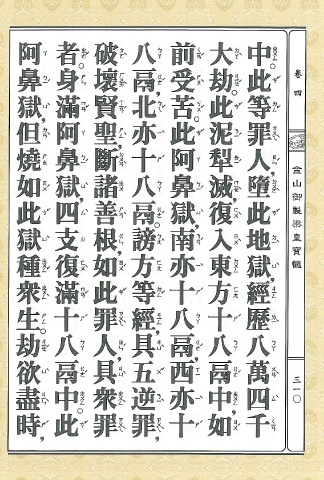 卷四
金山御製梁皇寶懺
三一〇
中。此等罪人,墮此地獄,經歷八萬四千
大劫。此泥犁滅,復入東方十八鬲中,如
前受苦。此阿鼻獄,南亦十八鬲,西亦十
八鬲,北亦十八鬲。謗方等經,具五逆罪,
破壞賢聖,斷諸善根,如此罪人,具眾罪
者,身滿阿鼻獄,四支復滿十八鬲中。此
阿鼻獄,但燒如此獄種眾生。劫欲盡時,